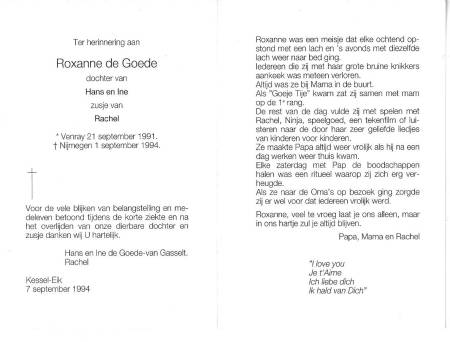 Ter herinnering aan
Roxanne de Goede
dochter van
Hans en Ine
zusje van
Rachel
* Venray 21 september 1991.
† Nijmegen 1 september 1994.
Voor de vele blijken van belangstelling en me-
deleven betoond tijdens de korte ziekte en na
het overlijden van onze dierbare dochter en
zusje danken wij U hartelijk.
Hans en Ine de Goede-van Gasselt.
Rachel
Kessel-Eik
7 september 1994
Roxanne was een meisje dat elke ochtend op-
stond met een lach en 's avonds met diezelfde
lach weer naar bed ging.
Iedereen die zij met haar grote bruine knikkers
aankeek was meteen verloren.
Altijd was ze bij Mama in de buurt.
Als "Goeje Tije" kwam zat zij samen met mam
op de 1e rang.
De rest van de dag vulde zij met spelen met
Rachel, Ninja, speelgoed, een tekenfilm of lui-
steren naar de door haar zeer geliefde liedjes
van kinderen voor kinderen.
Ze maakte Papa altijd weer vrolijk als hij na een
dag werken weer thuis kwam.
Elke zaterdag met Pap de boodschappen
halen was een ritueel waarop zij zich erg ver-
heugde.
Als ze naar de Oma's op bezoek ging zorgde
zij er wel voor dat iedereen vrolijk werd.
Roxanne, veel te vroeg laat je ons alleen, maar
in ons hartje zul je altijd blijven.
Papa, Mama en Rachel
"I love you
Je t'Aime
Ich liebe dich
Ik hald van Dich"